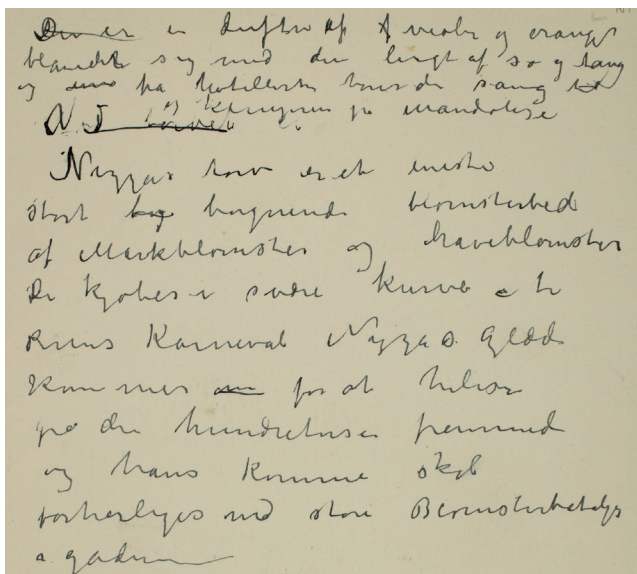 Den er en duften af violer og oranger
blandede sig med den lugt af sø og tang
og fra hotellerne hørsde sang
og klimpren på mandoline
Nizzas torv er et eneste
stort bugnende blomsterbed
af Markblomster og haveblomster
De kjøbes i svære kurve
Karneval Nizzas Glæde
kommer for at hilse
på de hundretuse fremmed
og hans komme skal
forherliges med store Blomsterbetalje
i gadern